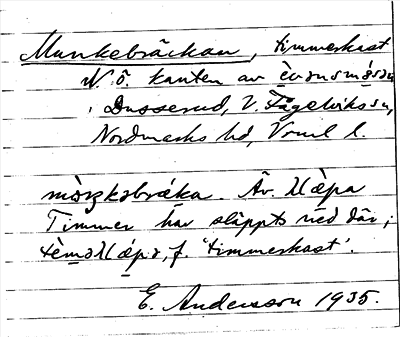 Munkebräckan, timmerkast
N. ö. kanten av èvənsmósən
i Dusserud, V. Fågelviks sn,
Nordmarks hd, Vrml l.
mòŋkəbrɛ́ka. Äv. klɛ̀pa
Timmer har släppts ned där;
tèməklɛ́pə, f. 'timmerkast'.
E. Andersson 1935.